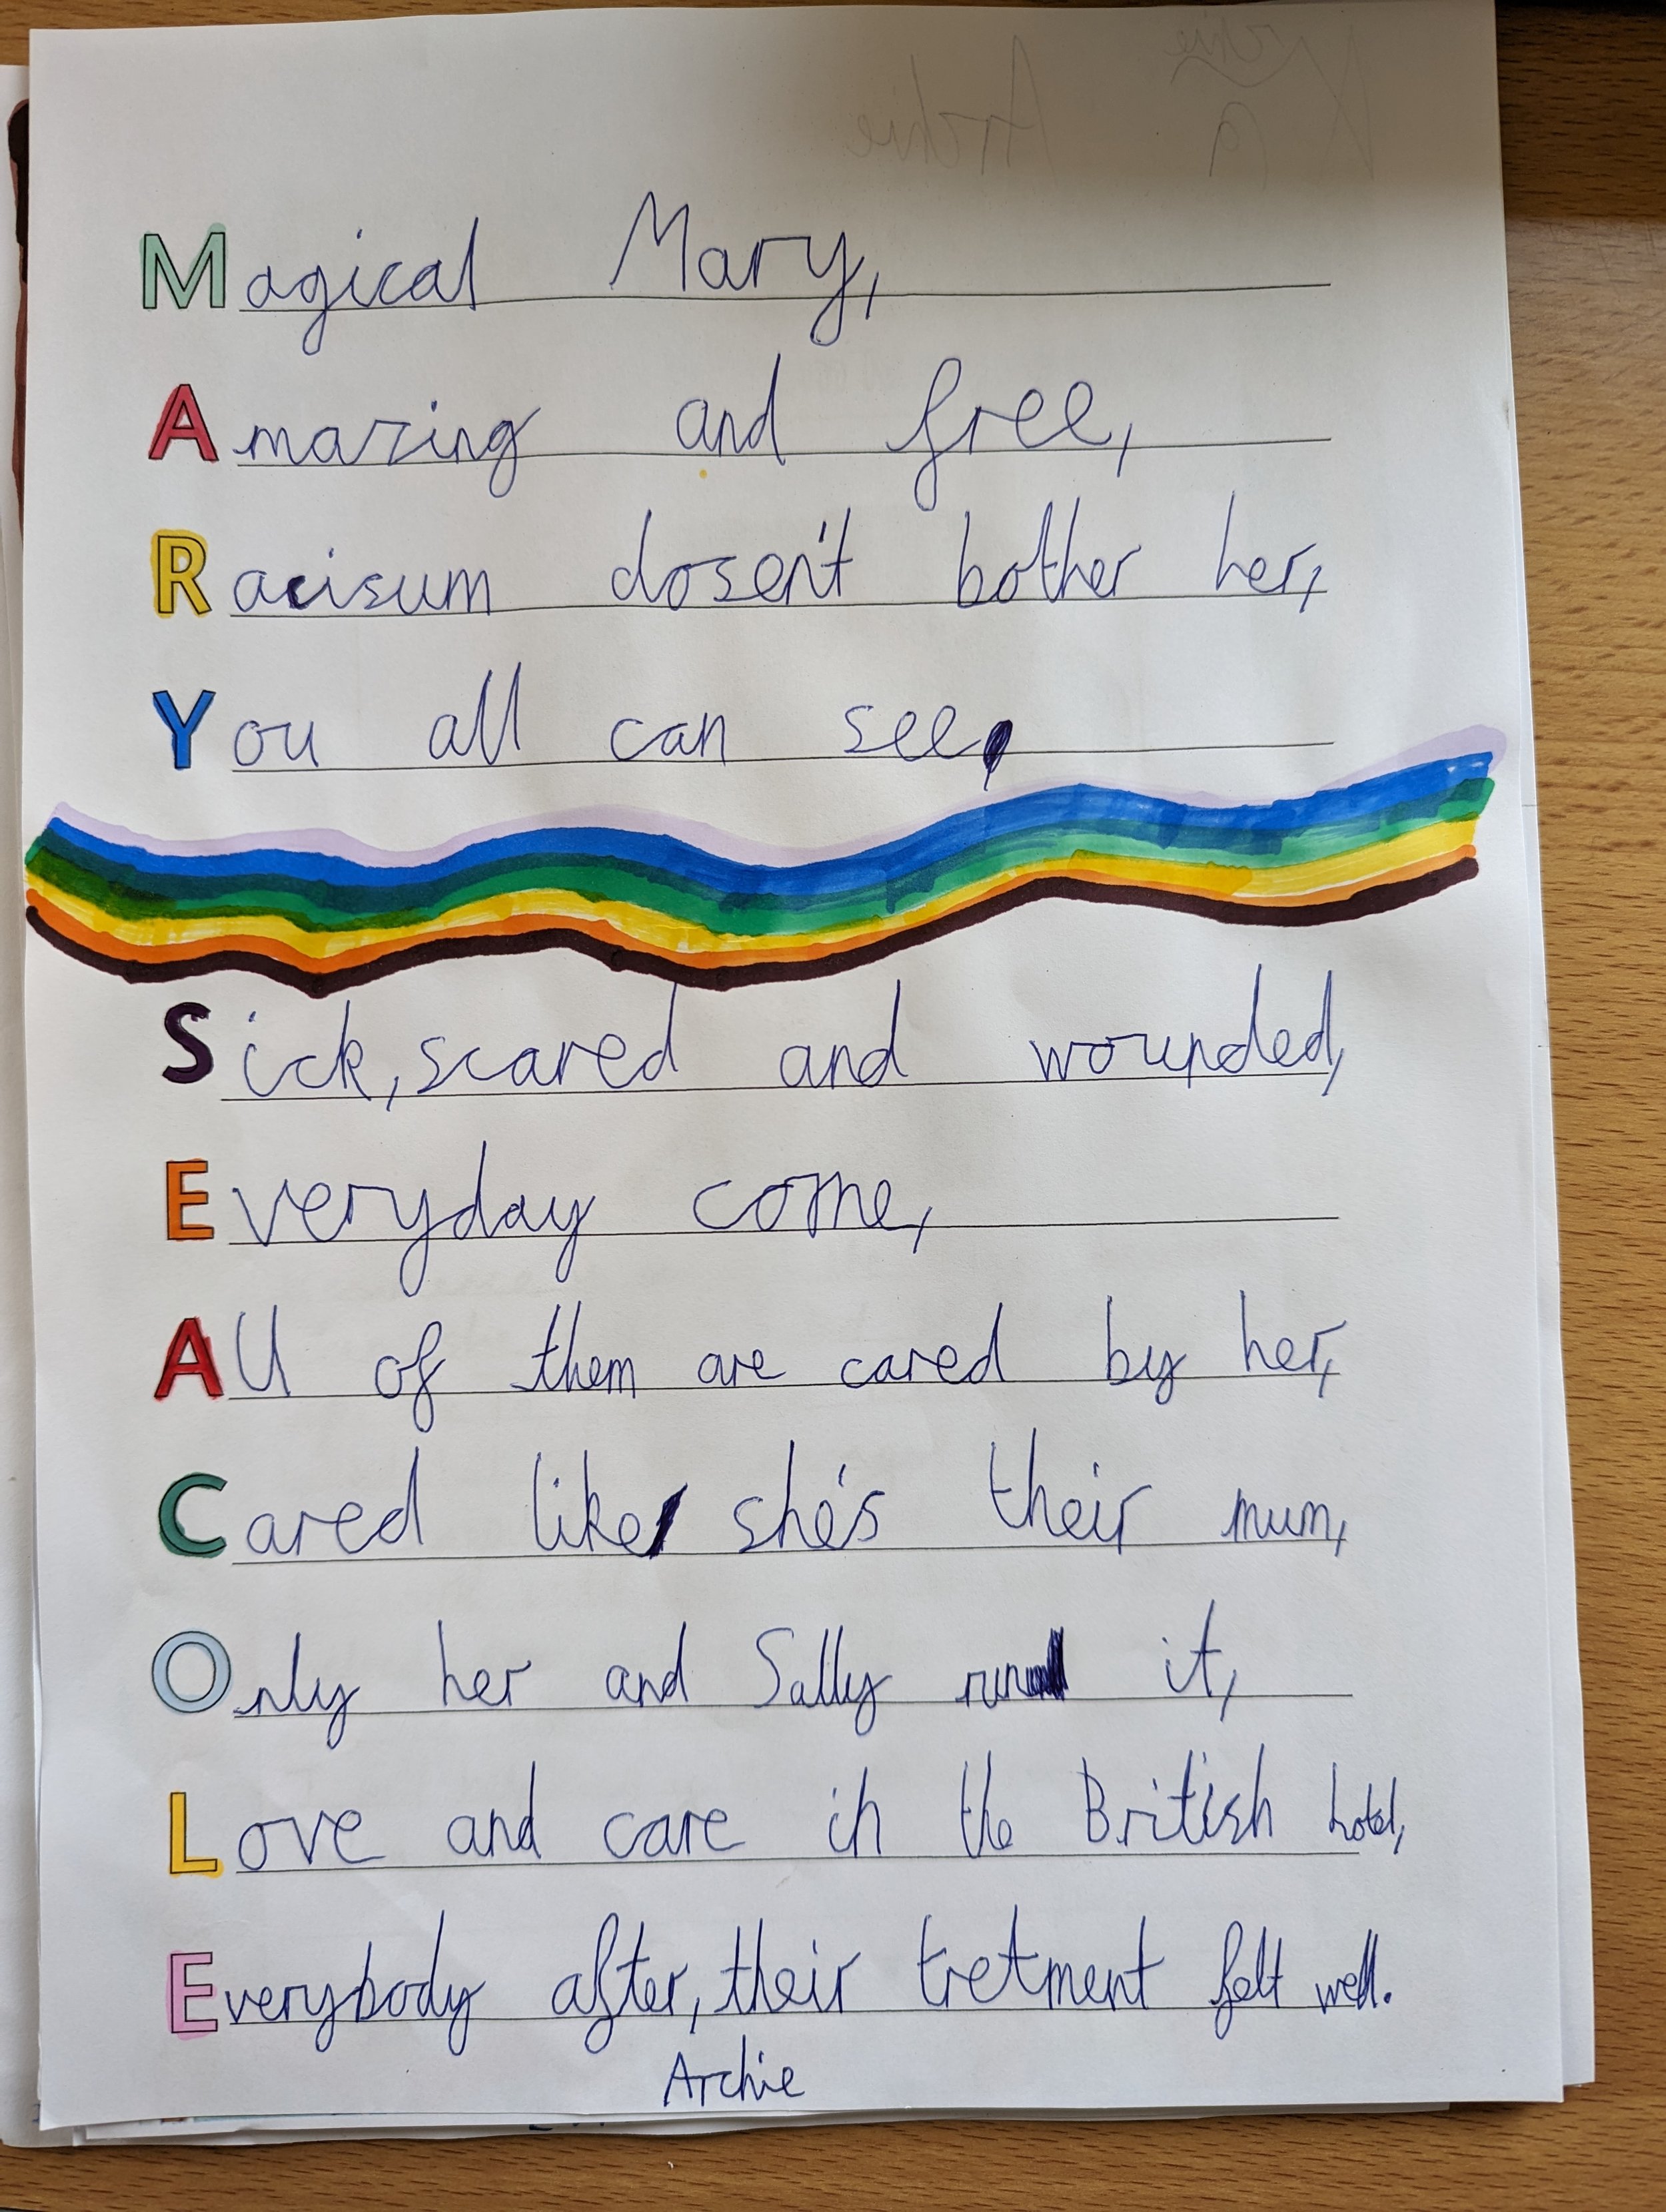 Magical Mary,
Amazing and free,
Racisum dosen't bother her,
You all can see,
Sick, scared and wounded,
Everyday come,
All of them are cared by her,
Cared like she's their mum,
Only her and Sally run it,
Love and care in the British hotel,
Everybody after, their tretment felt well.
Archie